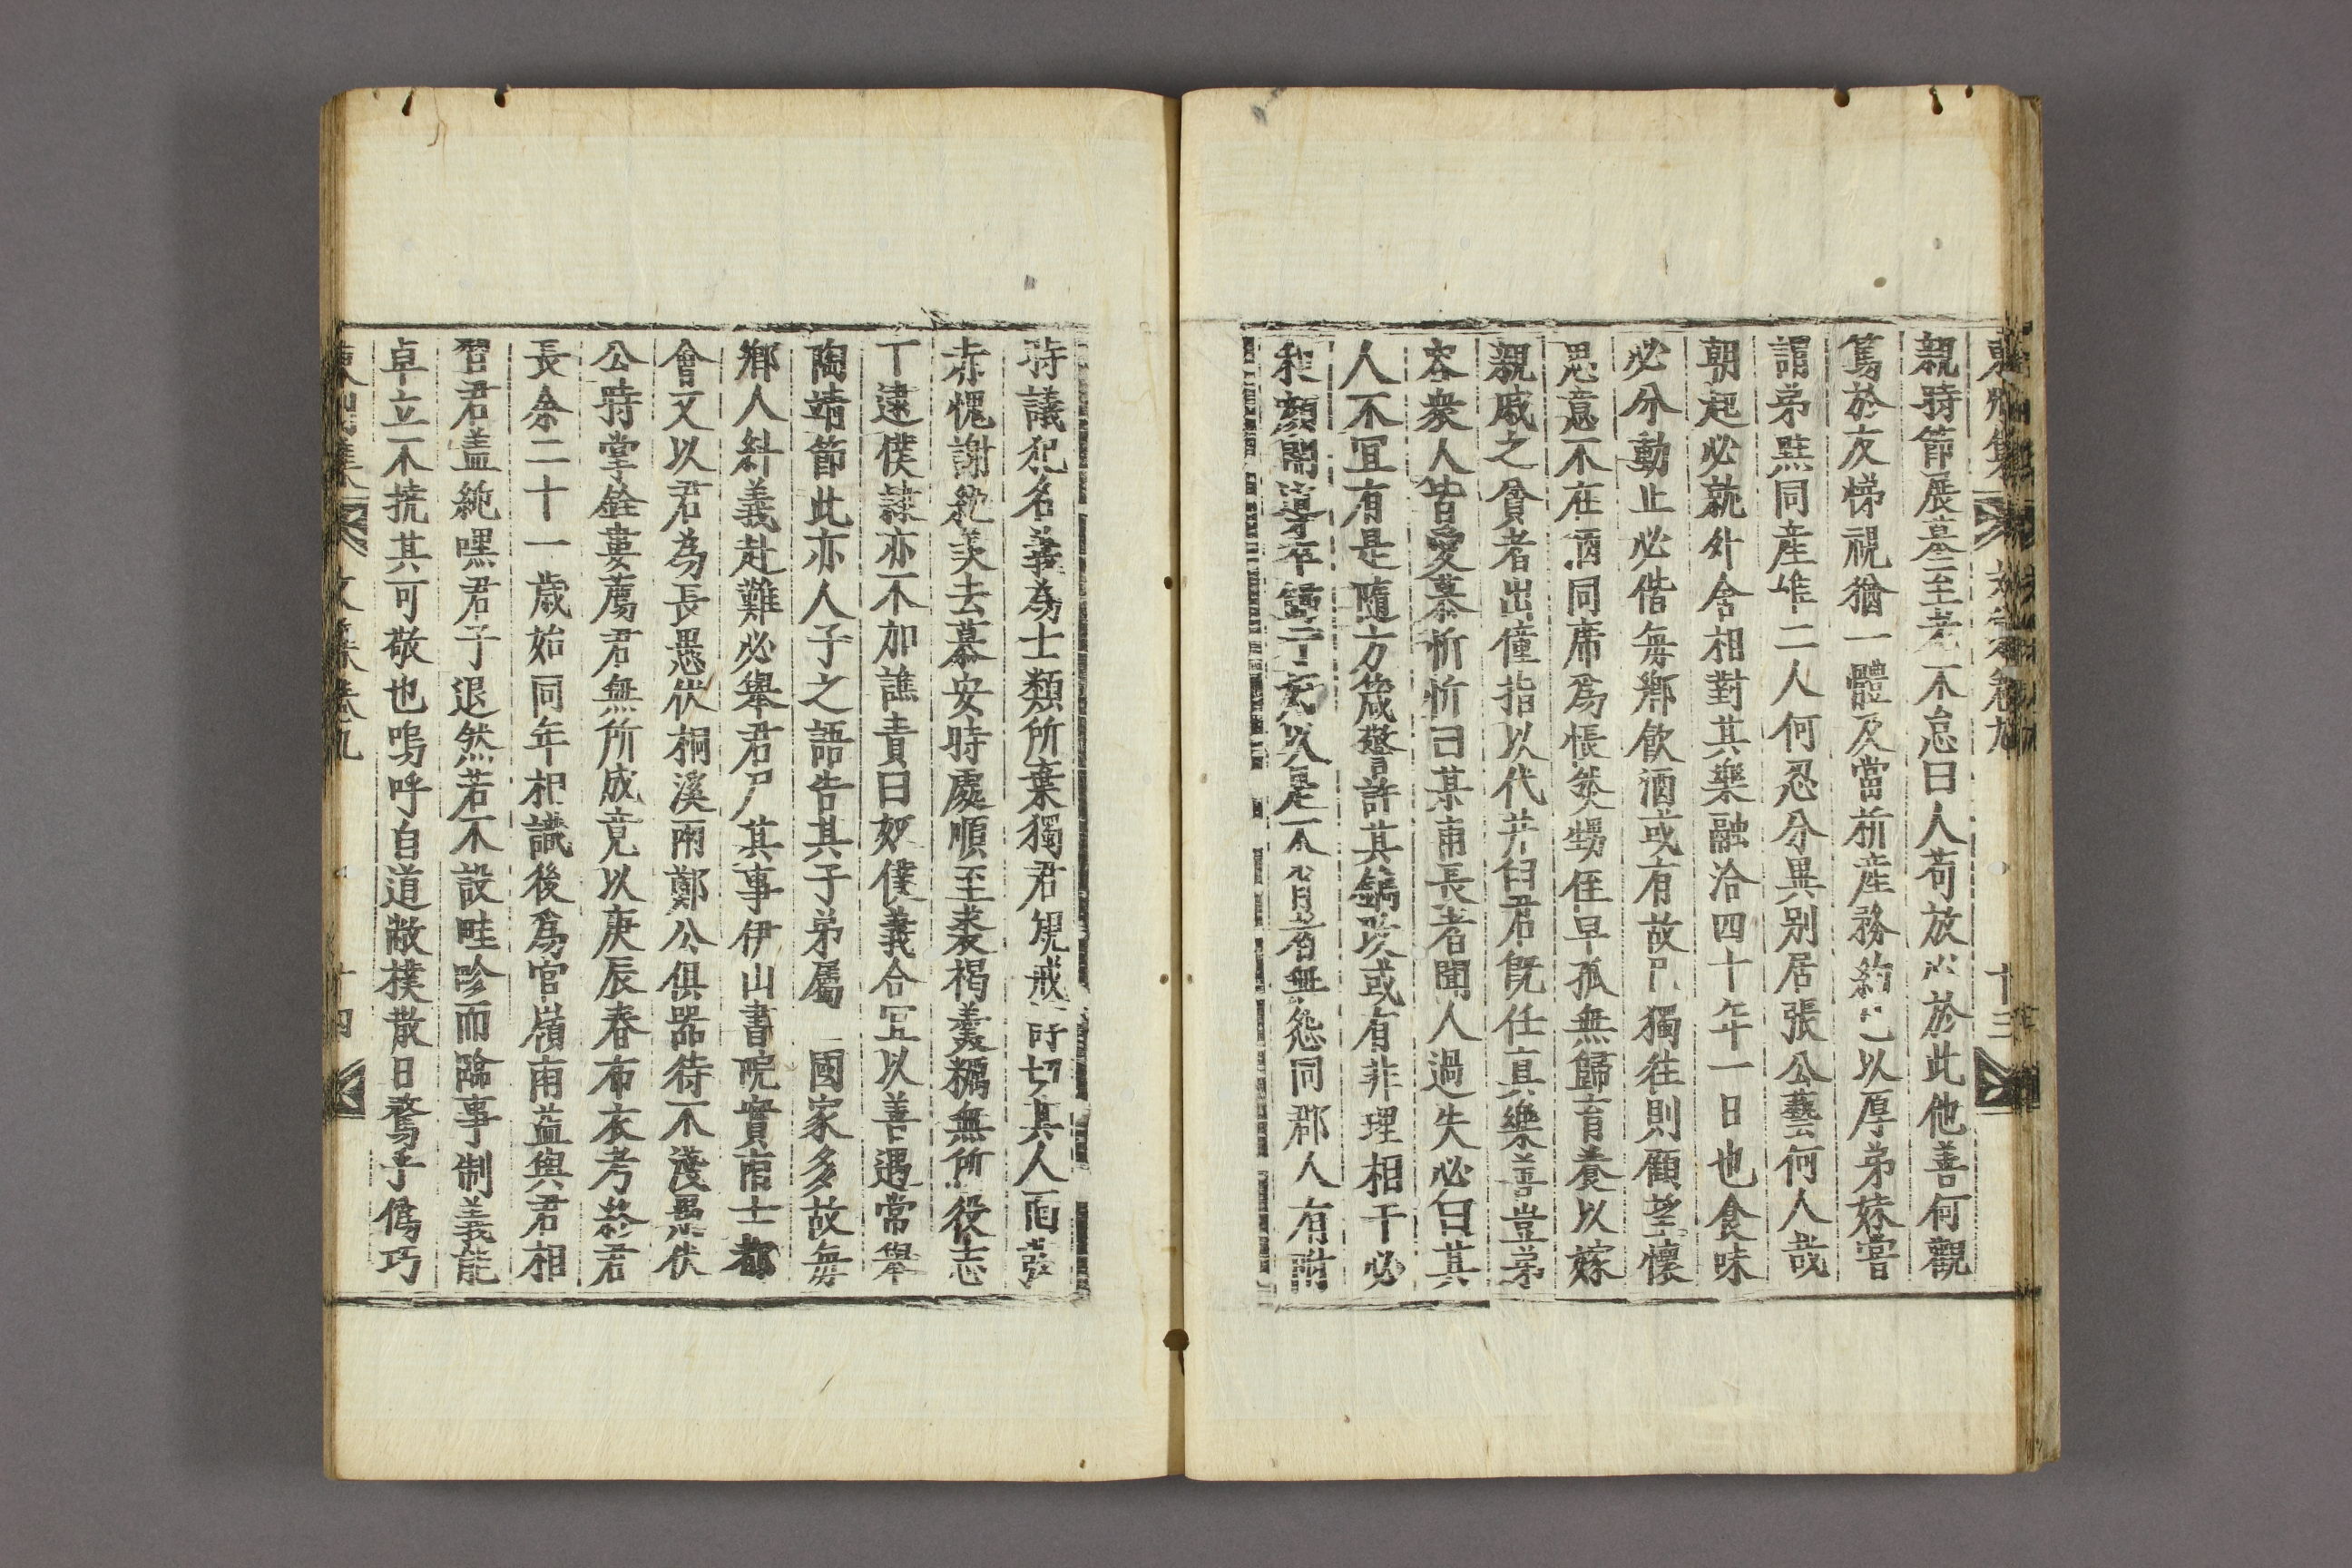 親時節展墓至老不怠曰人苟放心於此他善何觀
篤於友悌視猶一體及當析產務約己以厚弟妹嘗
謂弟㷗同產唯二人何忍分異別居張公藝何人哉
朝起必就外舍相對其樂融洽四十年一日也食味
必分動止必偕每鄉飮酒或有故 獨往則顧望懷
思意不在酒同席爲悵然甥侄早孤無歸育養以嫁
親戚之貧者出僮指以代井臼君旣任眞樂善豈弟
容衆人皆愛慕忻忻曰某甫長者聞人過失必曰其
人不宜有是隨方箴警許其 改或有非理相干必
和顏開導卒 以是不肖者無怨同郡人有附
時議犯名義爲士類所棄獨君規戒 切其人面
赤愧謝歎羨去慕安時處順至裘褐羹糲無所役志
丁逮僕隷亦不加譙責曰奴僕義合宜以善遇常擧
陶靖節此亦人子之語告其子弟屬 國家多故每
鄕人糾義赴難必擧君尸其事伊山書院實南士都
會又以君爲長愚伏桐溪兩鄭公俱器待不淺愚伏
公時掌銓蔞薦君無所成竟以庚辰春布衣考終君
長余二十一歲始同年相識後爲官嶺南益與君相
習君盖純嘿君子退然若不設畦畛而臨事制義能
卓立不撓其可敬也嗚呼自道敝樸散日騖乎僞巧
文集卷九 十四